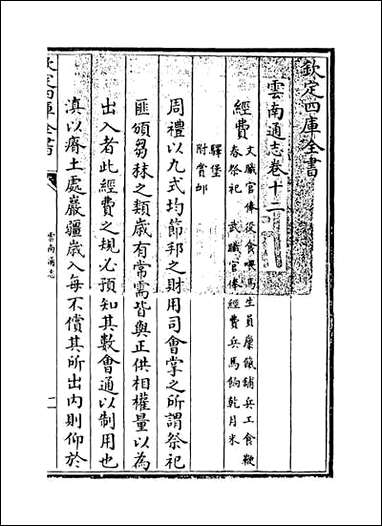 欽定四庫全書
雲南通志卷十二
經費文職官俸從食喂馬生員廩餼鋪兵工食鞭
春祭祀　武職官俸經費兵馬餉乾月米
驛堡
附賞䘏
周禮以九式均節邦之財用司會掌之所謂祭祀
匪頒芻秣之類歲有常需皆與正供相權量以為
出入者此經費之規必預知其數會通以制用也
滇以瘠土處巖疆歲入每不償其所出内則仰於
欽定四庫全書
雲南通志
一